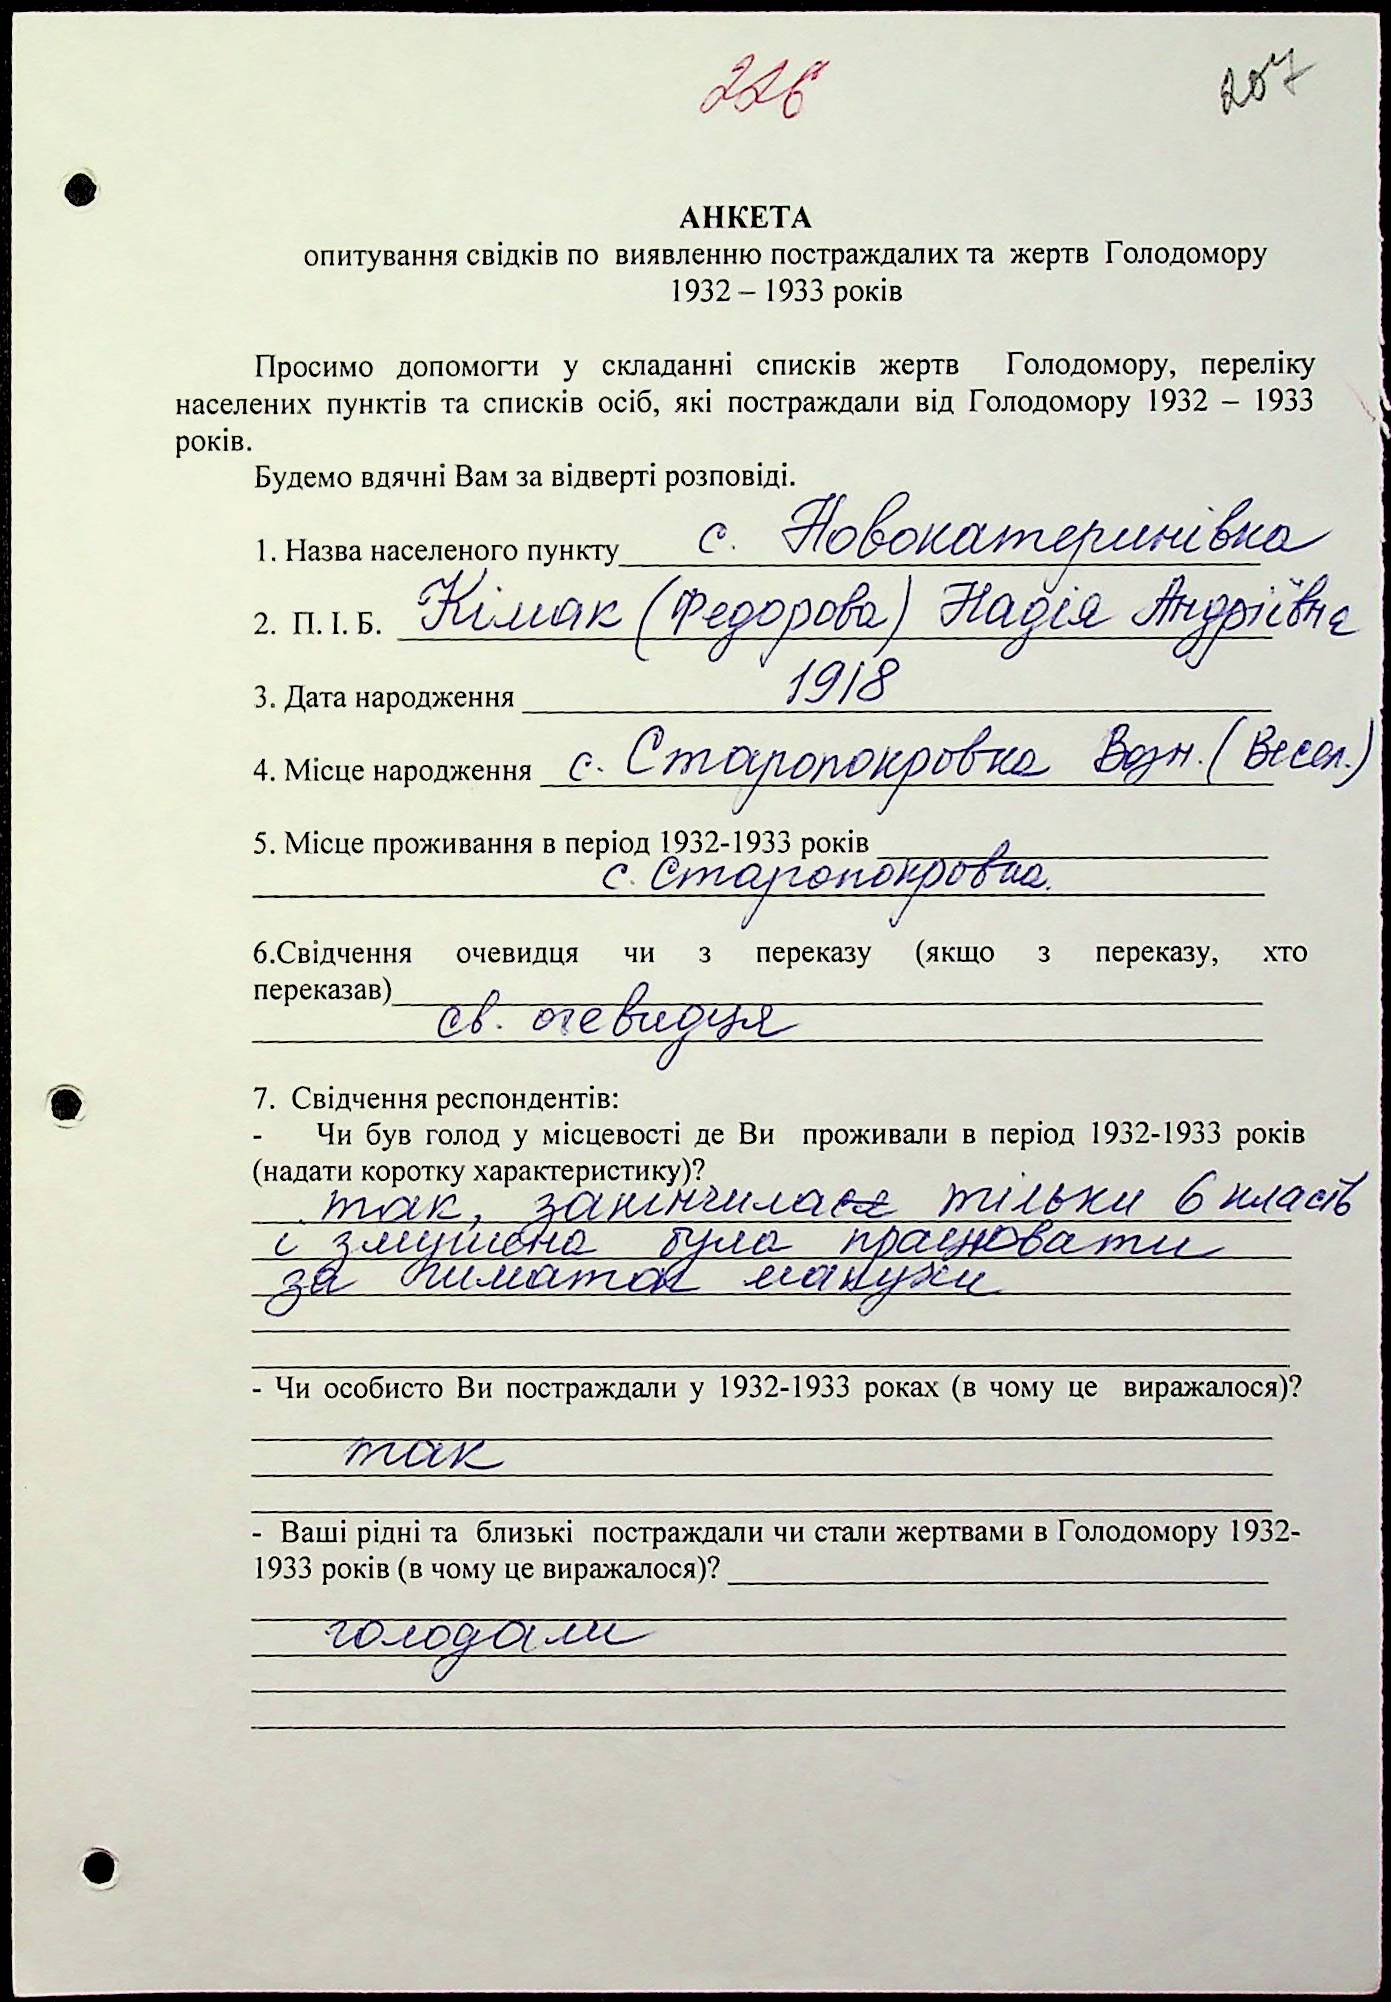 226
207
АНКЕТА
опитування свідків по виявленню постраждалих та жертв Голодомору
1932 – 1933 років
Просимо допомогти у складанні списків жертв Голодомору, переліку
населених пунктів та списків осіб, які постраждали від Голодомору 1932 – 1933
років.
Будемо вдячні Вам за відверті розповіді.
1. Назва населеного пункту с. Новокатеринівка
2. П. І. Б. Кімак (Федорова) Надія Андріївна
3. Дата народження 1918
4. Місце народження с. Старопокровка Возн. (Весел.)
5. Місце проживання в період 1932-1933 років
с. Старопокровка.
6.Свідчення очевидця чи з переказу (якщо з переказу, хто
переказав)
св. очевидця
7. Свідчення респондентів:
- Чи був голод у місцевості де Ви проживали в період 1932-1933 років
(надати коротку характеристику)?
так, закінчила тільки 6 класів
і змушена була працювати
за шматок макухи
- Чи особисто Ви постраждали у 1932-1933 роках (в чому це виражалося)?
так
- Ваші рідні та близькі постраждали чи стали жертвами в Голодомору 1932-
1933 років (в чому це виражалося)?
голодали